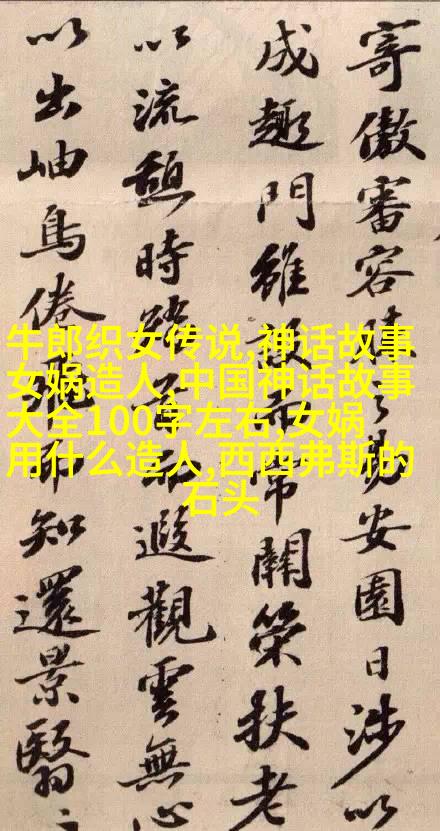 寄傲審容膝之易安園日涉以
成趣門雖設而常關策扶老
以流憩時矯首而遐觀雲無心
以出岫鳥倦飛而知還景翳〻
牛郎织女传说,神话故事
女娲造人,中国神话故事
大全100字左右,女娲
用什么造人,西西弗斯的
石头